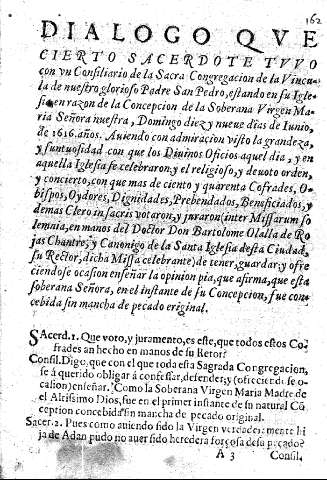 162
DIALOGO QVE
CIERTO SACERDOTE TVVO
con vn Consiliario de la Sacra Congregacion de la Vincu-
la de nuestro glorioso Padre San Pedro, estando en su Igle
sia en razon de la Concepcion de la Soberana Virgen Ma-
ria Señora nuestra, Domingo diez y nueue dias de Iunio,
de 1616. años. Auiendo con admiracion visto la grandeza,
y suntuosidad con que los Diuinos Oficios aquel dia, y en
aquella Iglesia se celebraron: y el religioso, y deuoto orden,
y concierto, con que mas de ciento y quarenta Cofrades, O-
bispos, Oydores, Dignidades, Prebendados, Beneficiados, y
demas Clero in sacris votaron, y juraron (inter Missarum so
lemnia, en manos del Doctor Don Bartolome Olalla de Ro
jas Chantre, y Canonigo de la Santa Iglesia desta Ciudad,
su Rector, dicha Missa celebrante) de tener, guardar, y ofre
ciendose ocasion enseñar la opinion pia, que afirma, que esta
soberana Señora, en el instante de su Concepcion, fue con-
cebida sin mancha de pecado original.
SAcerd. 1. Que voto, y juramento, es este, que todos estos Co-
frades an hecho en manos de su Retor?
Consil. Digo, que con el que toda esta Sagrada Congregacion,
se á querido obligar á confessar, defender, y (ofreciendose o-
casion) enseñar. Como la Soberana Virgen Maria Madre de
el Altissimo Dios, fue en el primer instante de su natural Cō
cepcion concebida sin mancha de pecado original.
Sacer. 2. Pues como auiendo sido la Virgen verdaderamente hi
ja de Adan pudo no auer sido heredera forçosa de su pecado?
A 3 Consil.